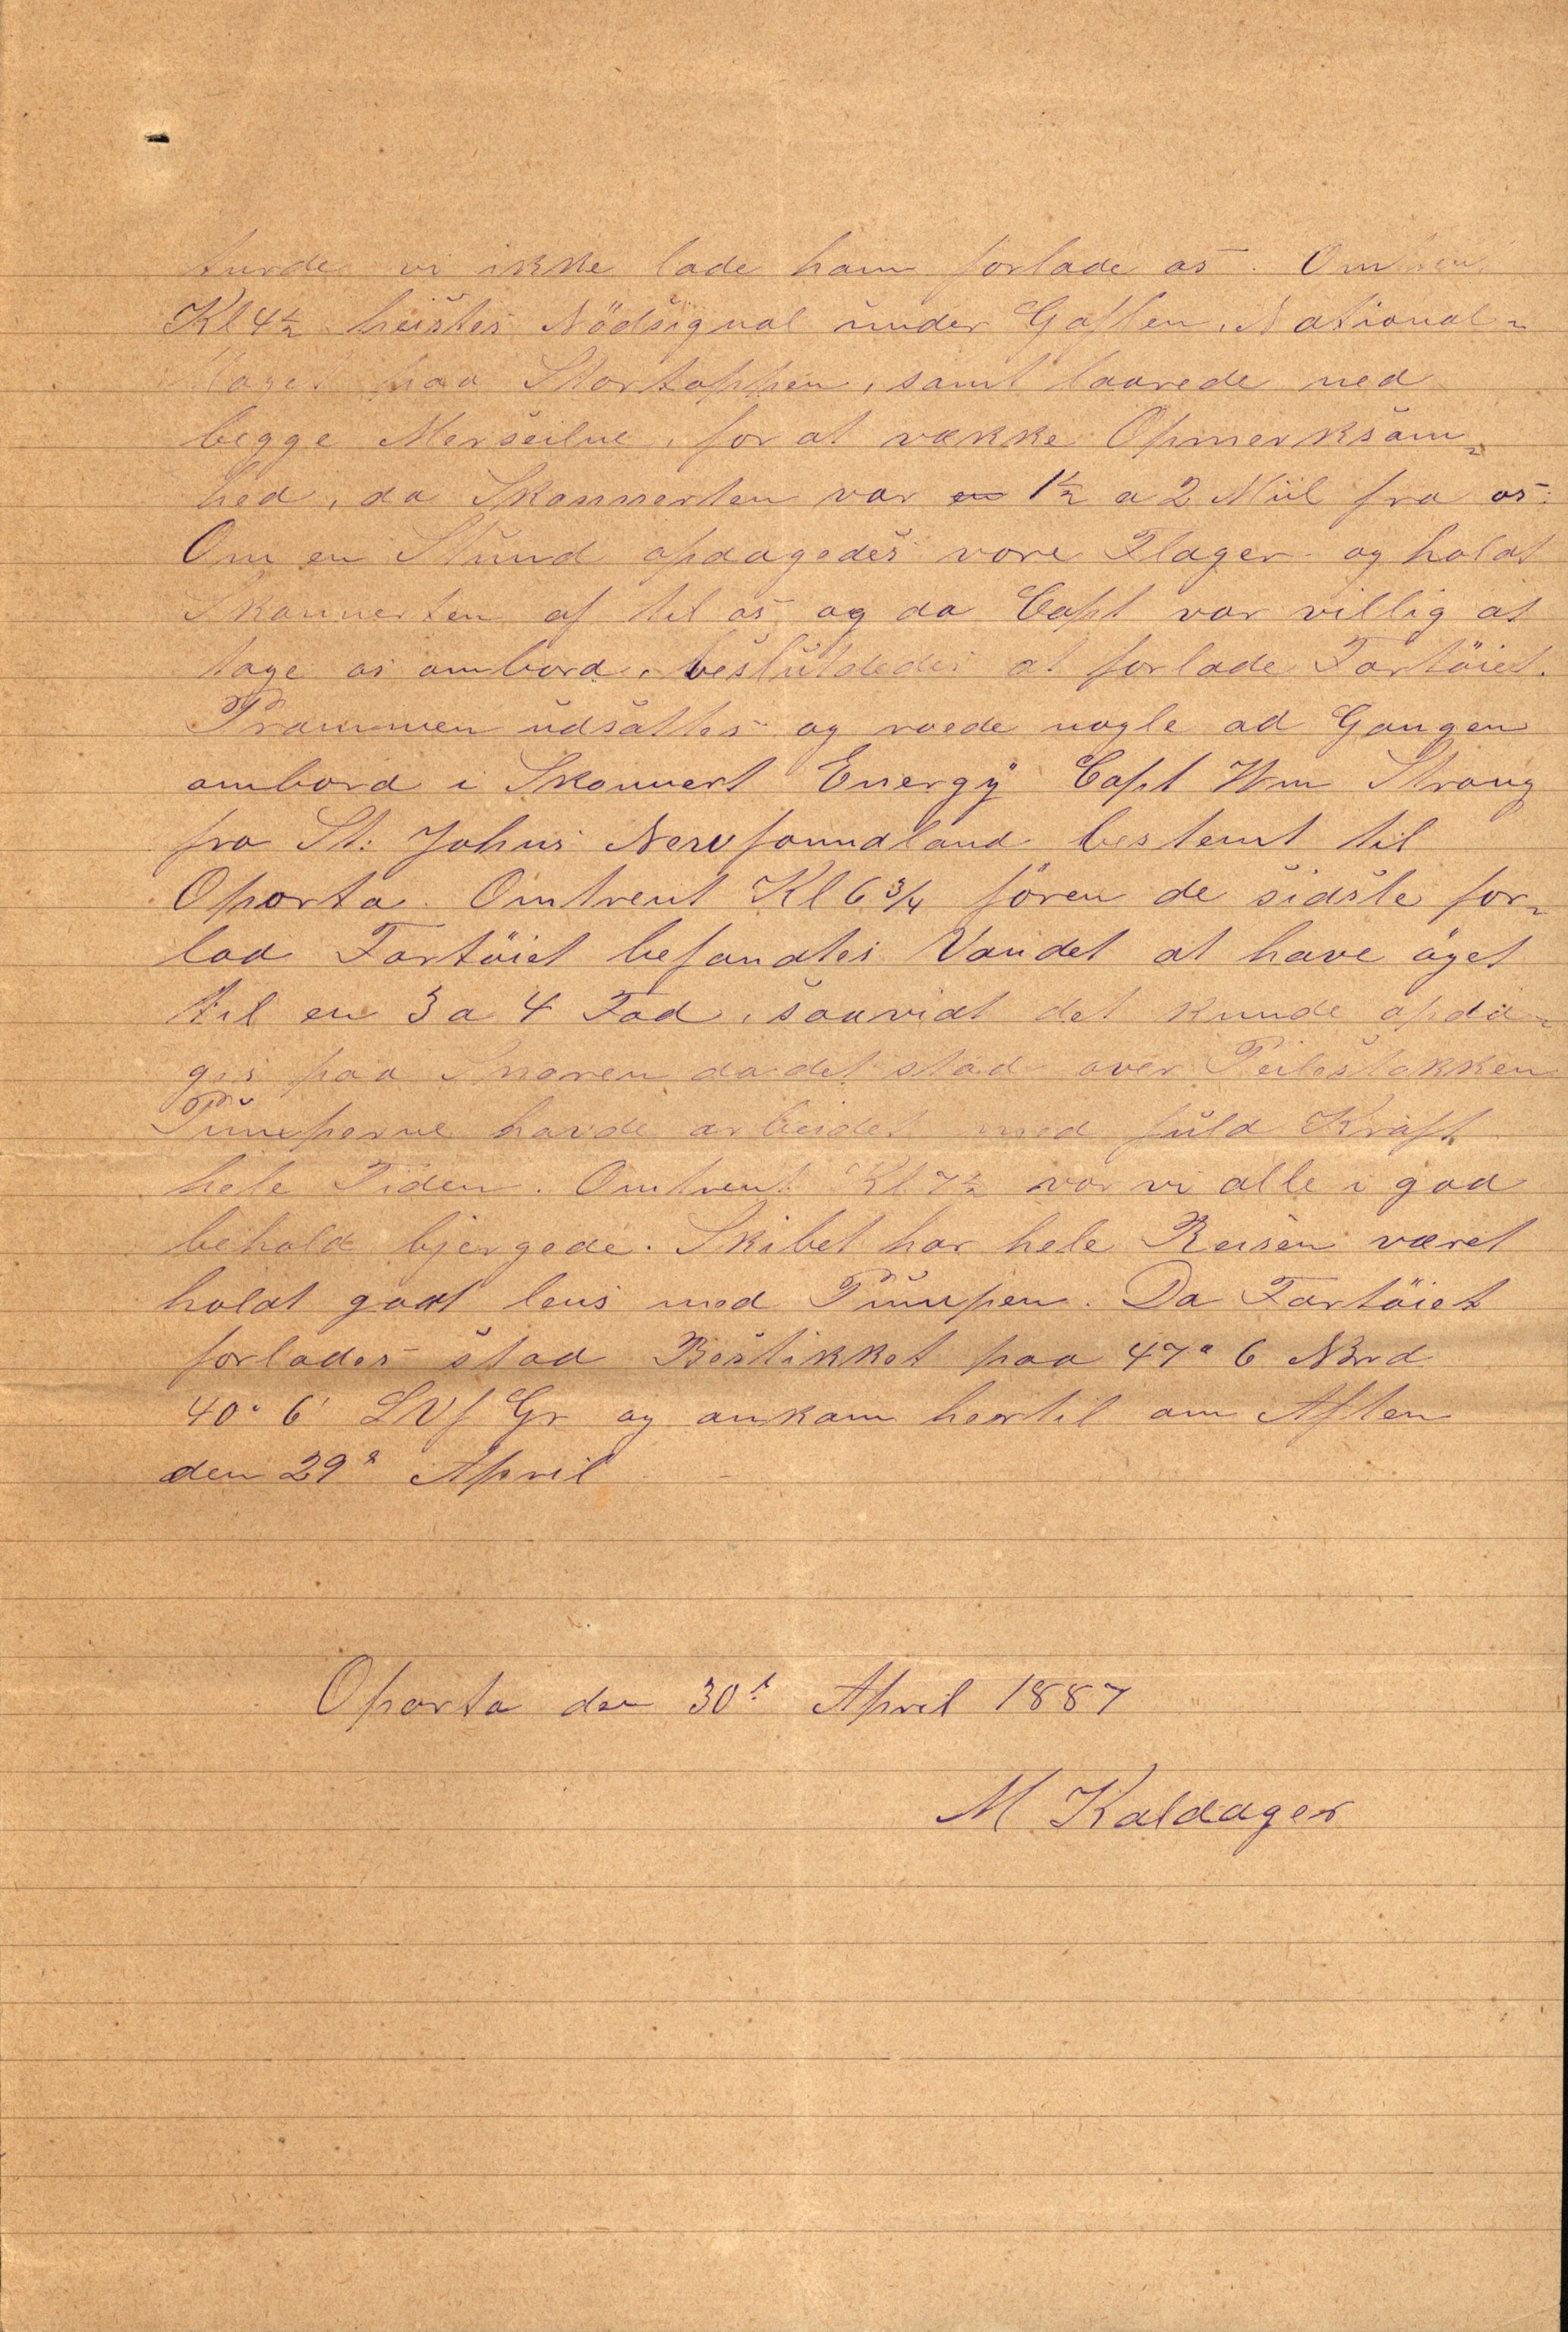 turde vi ikke lade ham forlade os. Omtrent
Kl 4½ heistes Nödsignal under Gaflen, National-
flaget paa Stortoppen, samt laarede ned
begge Merseilne, for at vække Opmerksom-
hed, da Skonnerten var en 1½ a 2 Miil fra os.
Om en Stund opdagedes vore Flager og holdt
Skonnerten af til os og da Capt var villig at
tage os ombord, beslutdedes at forlade Fartöiet.
Prammen udsattes og roede nogle ad Gangen
ombord i Skonnert Energy Capt Wm Strong
fra St: Johns Newfoundland bestemt til
Oporto. Omtrent Kl 6¾ fören de sidste for-
lod Fartöiet befandtes Vandet at have öget
til en 3 a 4 Fod, saavidt det kunde opda-
ges paa Snoren da det stod over Peilestokken
Pumperne havde arbeidet med fuld Kraft
hele Tiden. Omtrent Kl 7½ var vi alle i god
behold bjergede. Skibet har hele Reisen været
holdt godt lens med Pumpen. Da Fartöiet
forlades stod Bestikket paa 47° 6 NBrd
40° 6' LVf Gr og ankom hertil om Aften
den 29de April
Oporto den 30t April 1887
M Kaldager